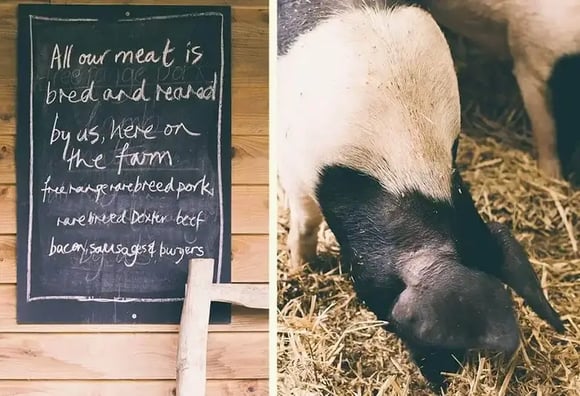 All our meat is
bred and reared
by us, here on
the farm
free range rare breed pork,
rare breed Dexter beef
bacon, sausages & burgers